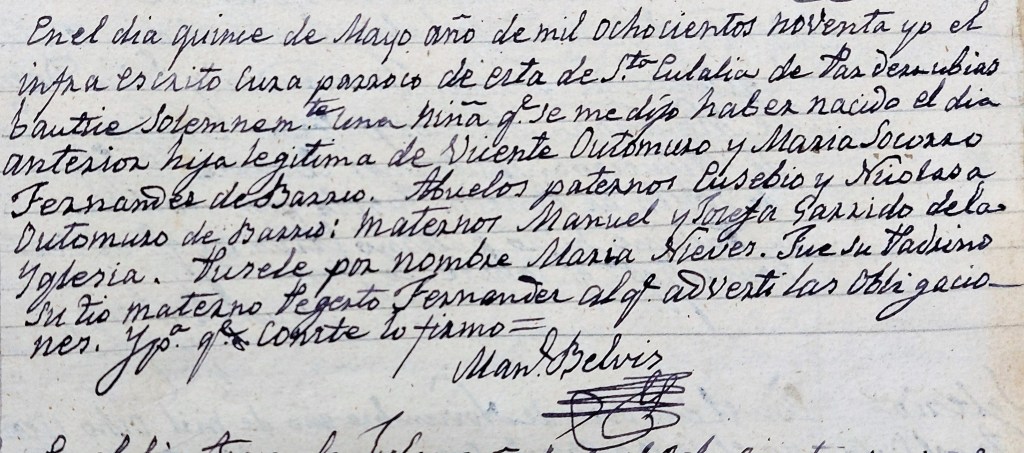 En el dia quince de Mayo año de mil ochocientos noventa yo el
infraescrito Cura parroco de esta de Sta Eulalia de Parderrubias
bautice Solemnemte una niña qe se me dijo haber nacido el dia
anterior hija legitima de Vicente Outomuro y Maria Socorro
Fernandez de Barrio. Abuelos paternos Eusebio y Nicolasa
Outomuro de Barrio: maternos Manuel y Josefa Garrido de la
Yglesia. Pusele por nombre Maria Nieves. Fue su Padrino
su tio materno Fernandez al qe adverti las obligacio-
nes. Y pa qe conste lo firmo =
Manl Belvis